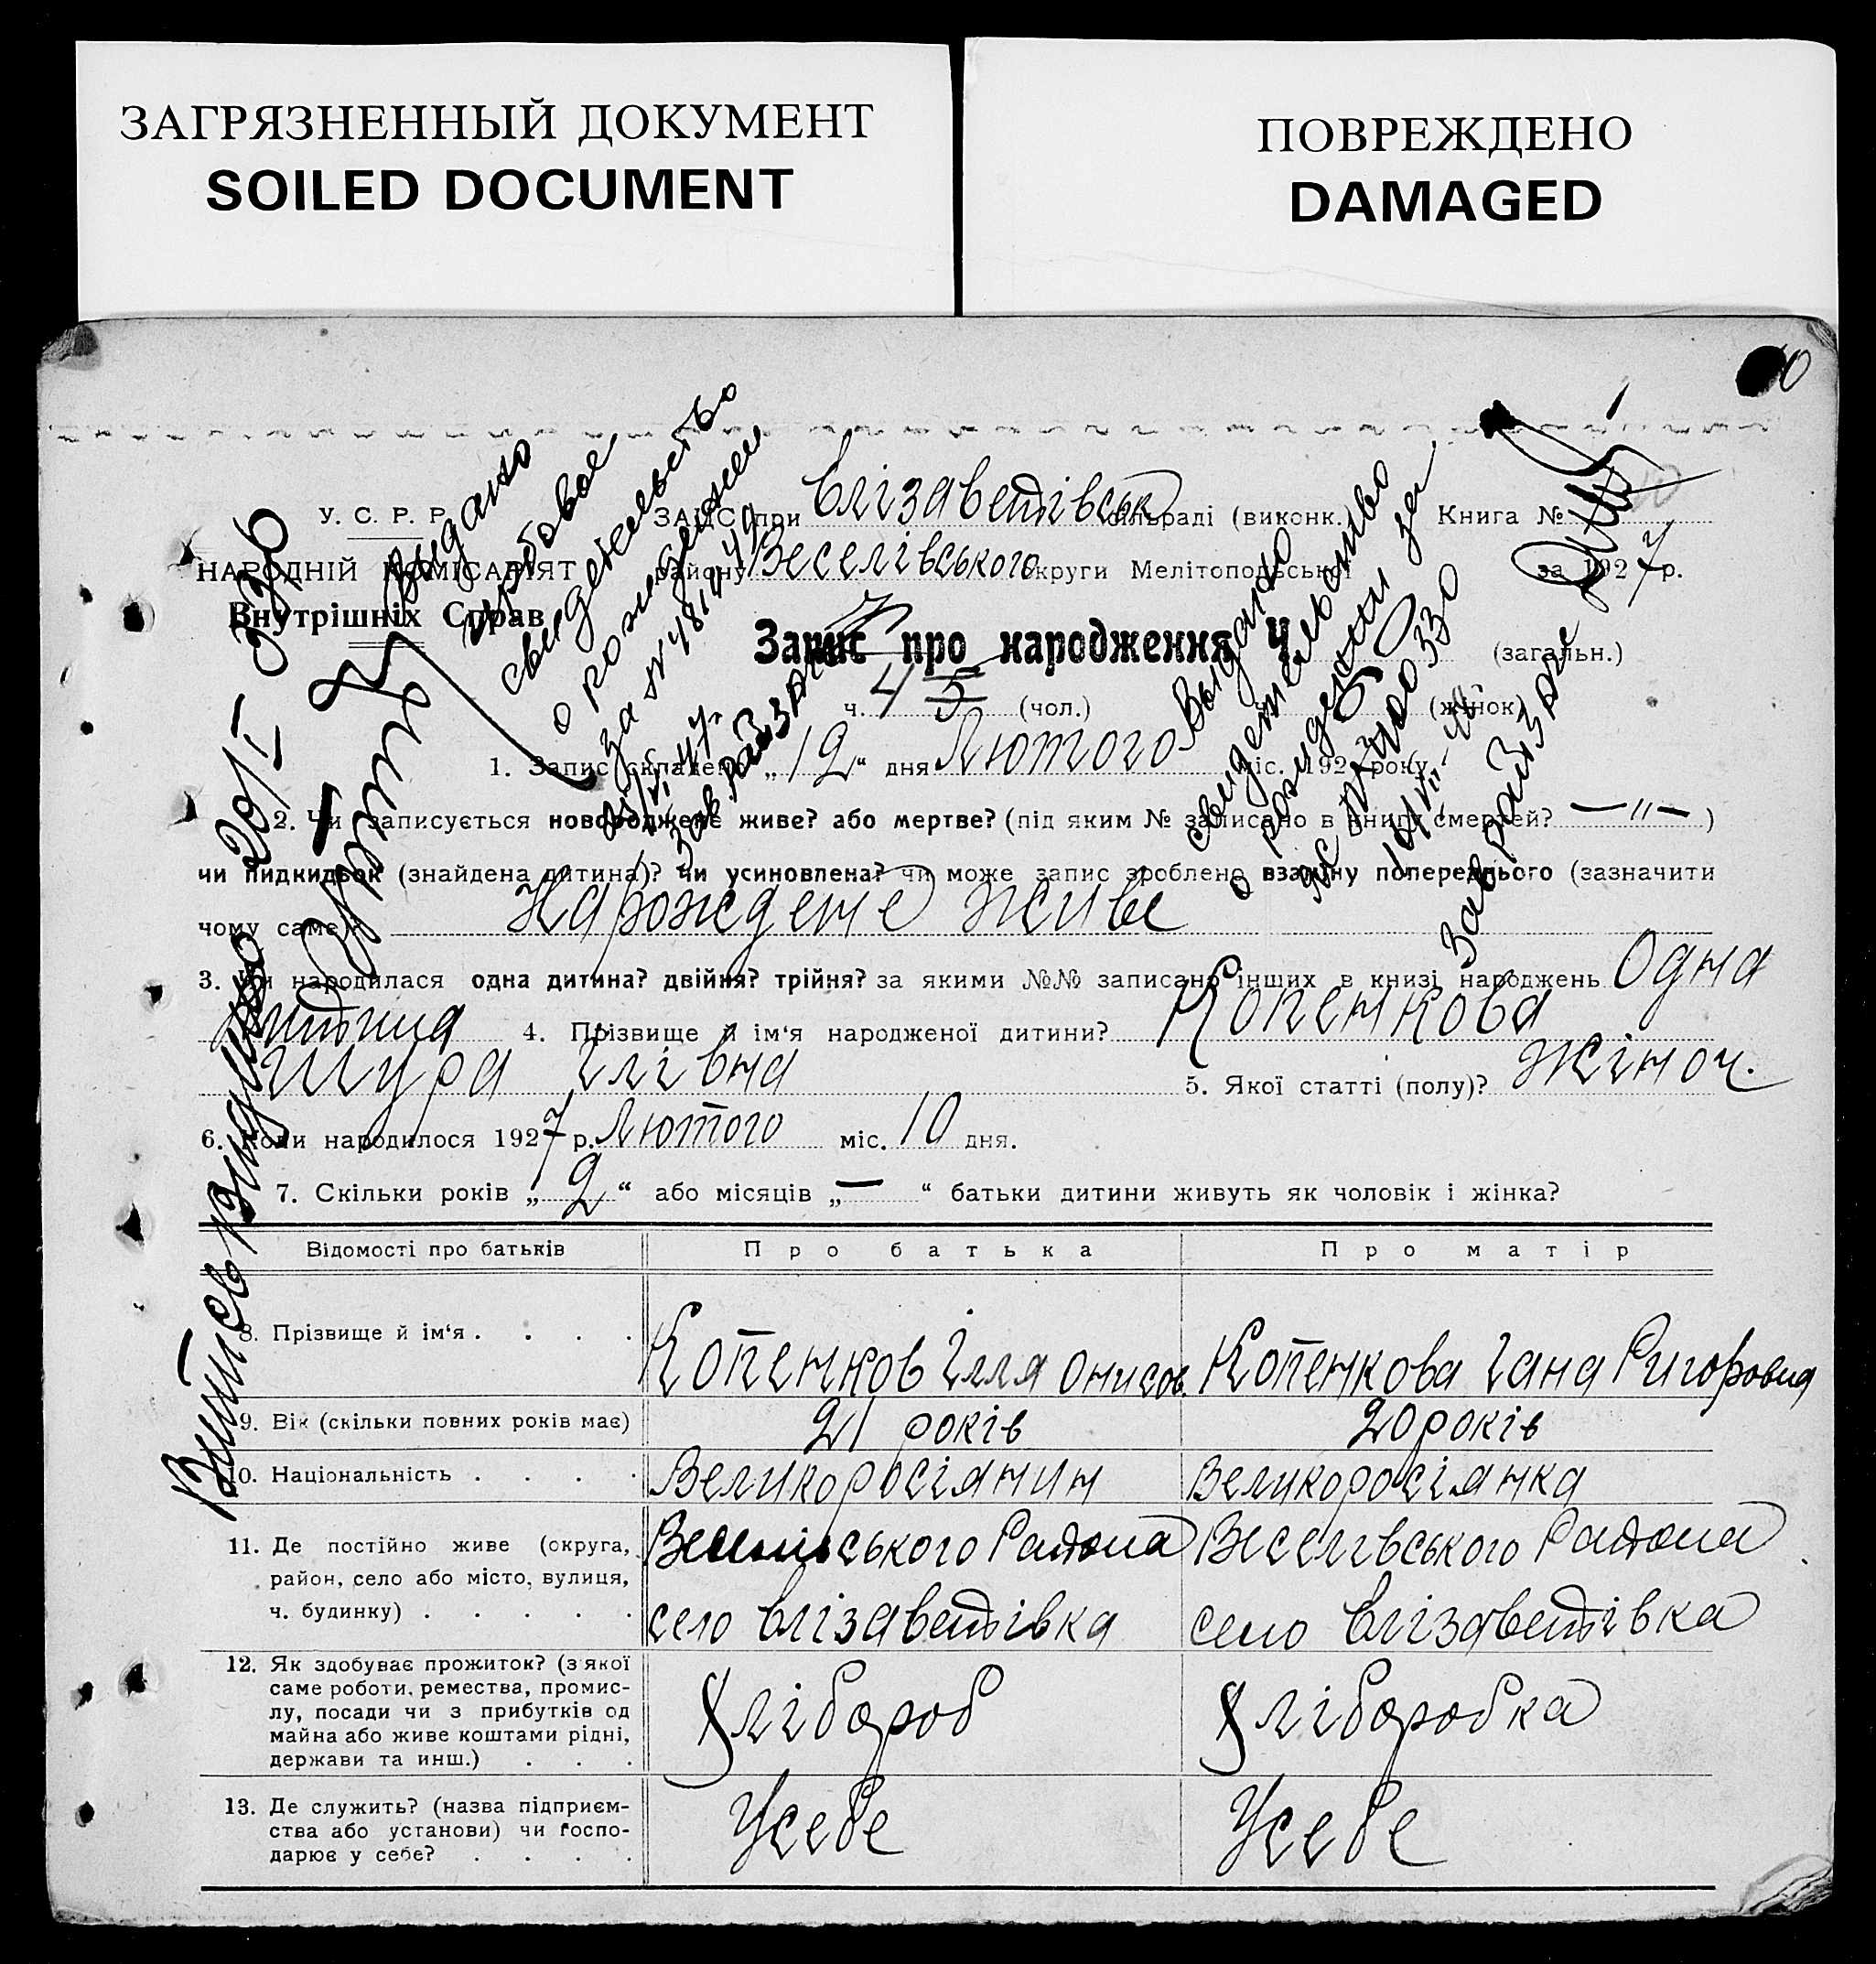 ЗАГРЯЗНЕННЫЙ ДОКУМЕНТ
SOILED DOCUMENT
ПОВРЕЖДЕНО
DAMAGED
10
У. С. Р. Р.
НАРОДНІЙ КОМІСАРІЯТ
Внутрішніх Справ
ЗАЦС при Єлізаветівськ сільраді (виконк.) Книга №
району Веселівського округи Мелітопольської за 1927 р.
Запис про народження Ч. (загальн.)
ч. 4 5 (чол.) (жінок)
1. Запис складено „12“ дня Лютого міс. 192 року
2. Чи записується новороджене живе? або мертве? (під яким № записано в книгу смертей? — „ — )
чи підкидьок (знайдена дитина)? чи усиновлена? чи може запис зроблено взаміну попереднього (зазначити
чому саме)? Нарождене живе
3. Чи народилася одна дитина? двійня? трійня? за якими №№ записано інших в книзі народжень Одна
дитина 4. Прізвище й ім'я народженої дитини? Копенкова
Шура Ілівна 5. Якої статті (полу)? Жіноч.
6. Коли народилося 1927 р. Лютого міс. 10 дня.
7. Скільки років „2“ або місяців „—“ батьки дитини живуть як чоловік і жінка?
Відомості про батьків Про батька Про матір
8. Прізвище й ім'я . . . . Копенков Ілля Онисов. Копенкова Гана Ригоровна
9. Вік (скільки повних років має) 21 років 20 років
10. Національність . . . . Великоросіянин Великоросіянка
11. Де постійно живе (округа, район, село або місто, вулиця, ч. будинку) . . . . .
Веселівського Района Веселівського Района
село Єлізаветівка село Єлізаветівка
12. Як здобуває прожиток? (з якої
саме роботи, ремества, промис-
лу, посади чи з прибутків од
майна або живе коштами рідні,
держави та инш.) . . .
Хлібороб Хліборобка
13. Де служить? (назва підприєм-
ства або установи) чи госпо-
дарює у себе? . . . .
Усебе Усебе
Видано
свидетельство
о рождении
за №
Зав. райЗАГС
Выдано
свидетельство
о рождении за
Зав райЗАГС